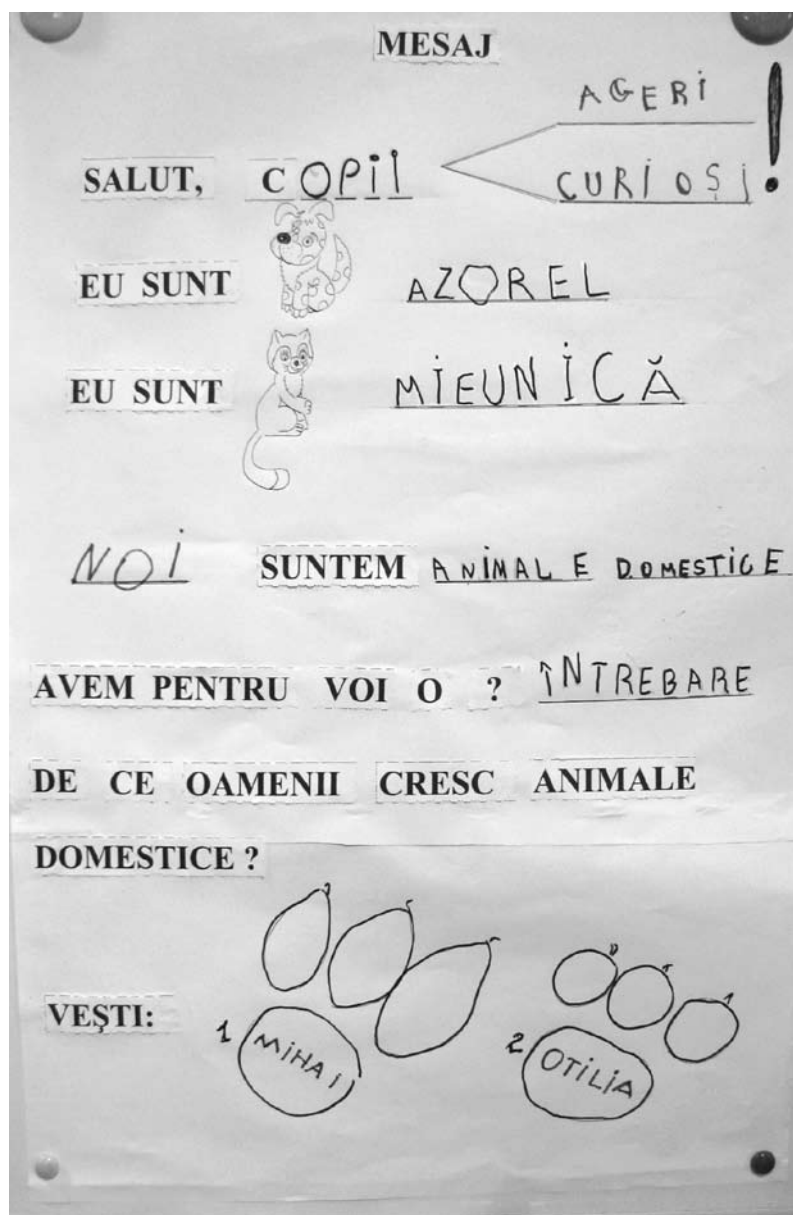 MESAJ
AGERI
SALUT, COPII
CURIOȘI !
EU SUNT AZOREL
EU SUNT MIEUNICĂ
NOI SUNTEM ANIMALE DOMESTICE
AVEM PENTRU VOI O ? ÎNTREBARE
DE CE OAMENII CRESC ANIMALE
DOMESTICE ?
VEŞTI: 1 MIHAI 2 OTILIA